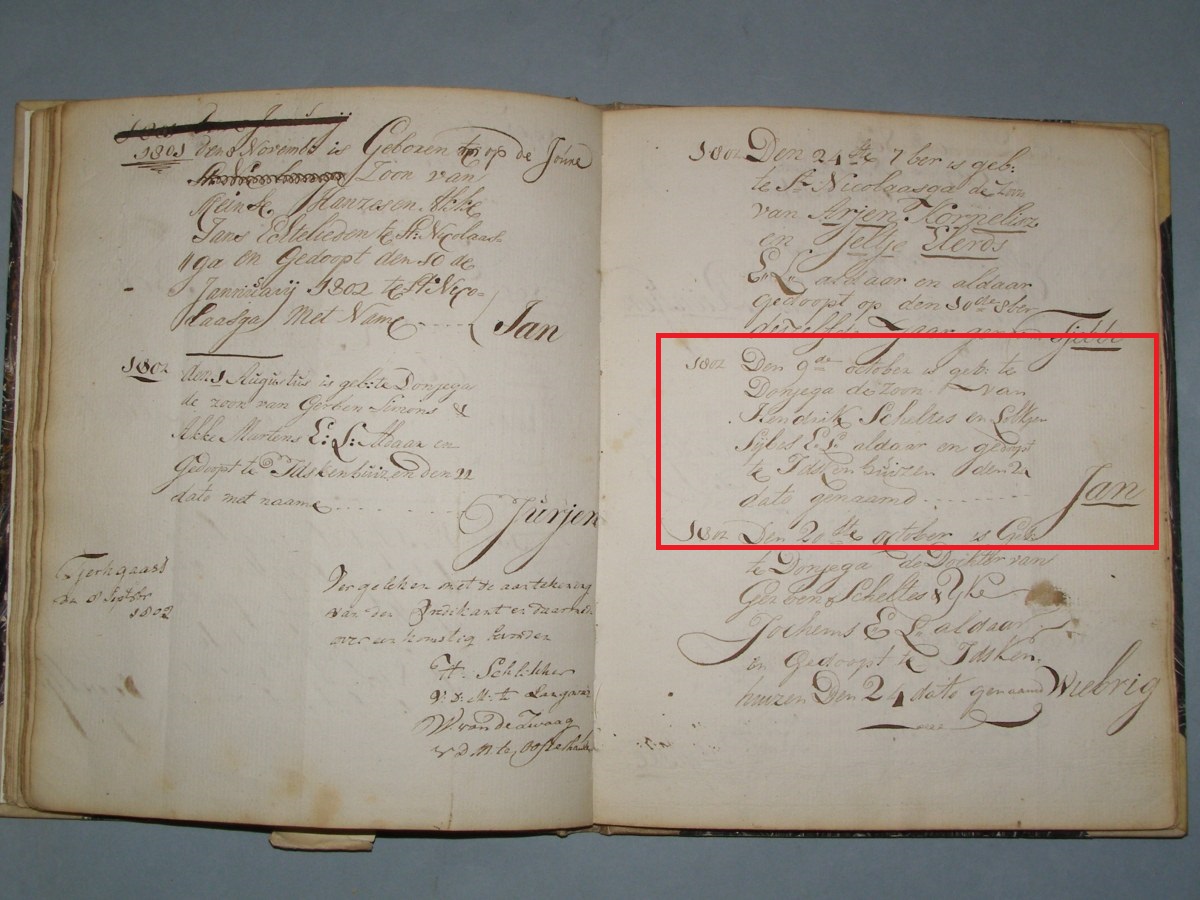 1801 den 8 Novemb: is Geboren te op de Joúre
Zoon van
Meinte Hanzes en Akke
Jans Echtelieden te St: Nicolaas
"ga en Gedoopt den 10 de
Jannúúarij 1802 te St: Nico-
laasga Met Name ..... Jan
1802 den 1 Augustús is geb: te Donjega
de zoon van Gerben Simons &
Akke Martens E: L: Aldaar en
Gedoopt te Idskenhúizen den 22
dato met naame .......... Júrjen
Tjerkgaast
den 8
1802
Vergeleken met de aantekening
van den Predikant en daarmede
over een komstig bevonden
H. Schlikker
V: D: M: te Langweer
W. van der Zwaag
V D M te
1802 Den 24 ste 7 ber is geb:
te St Nicolaasga de Zoon
van Arjen Kornelisz
en Jeltje Elerds
E: L: aldaar en aldaar
gedoopt op den 10 de 8 ber
dezelfde Jaar genaamt Tjebbe
1802 Den 9 de october is geb: te
Donjega de zoon van
Hendrik Scheltes en
Sijbes E: L: aldaar en gedoopt
te Idskenhuizen den 24
dato genaamd ......... Jan
1802 Den 20 ste october is Geb:
te Donjega de Dochter van
Gerben Scheltes & Yke
Jochems E L: aldaar
en Gedoopt te Idsken
huizen Den 24 dato genaamd Wiebrig